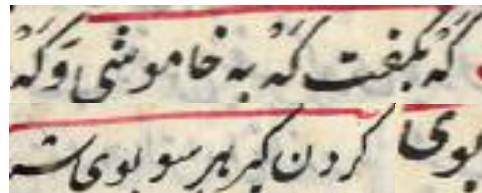 که بگفت که به خاموشی و که
بوی کردن گیر هر سو بوی